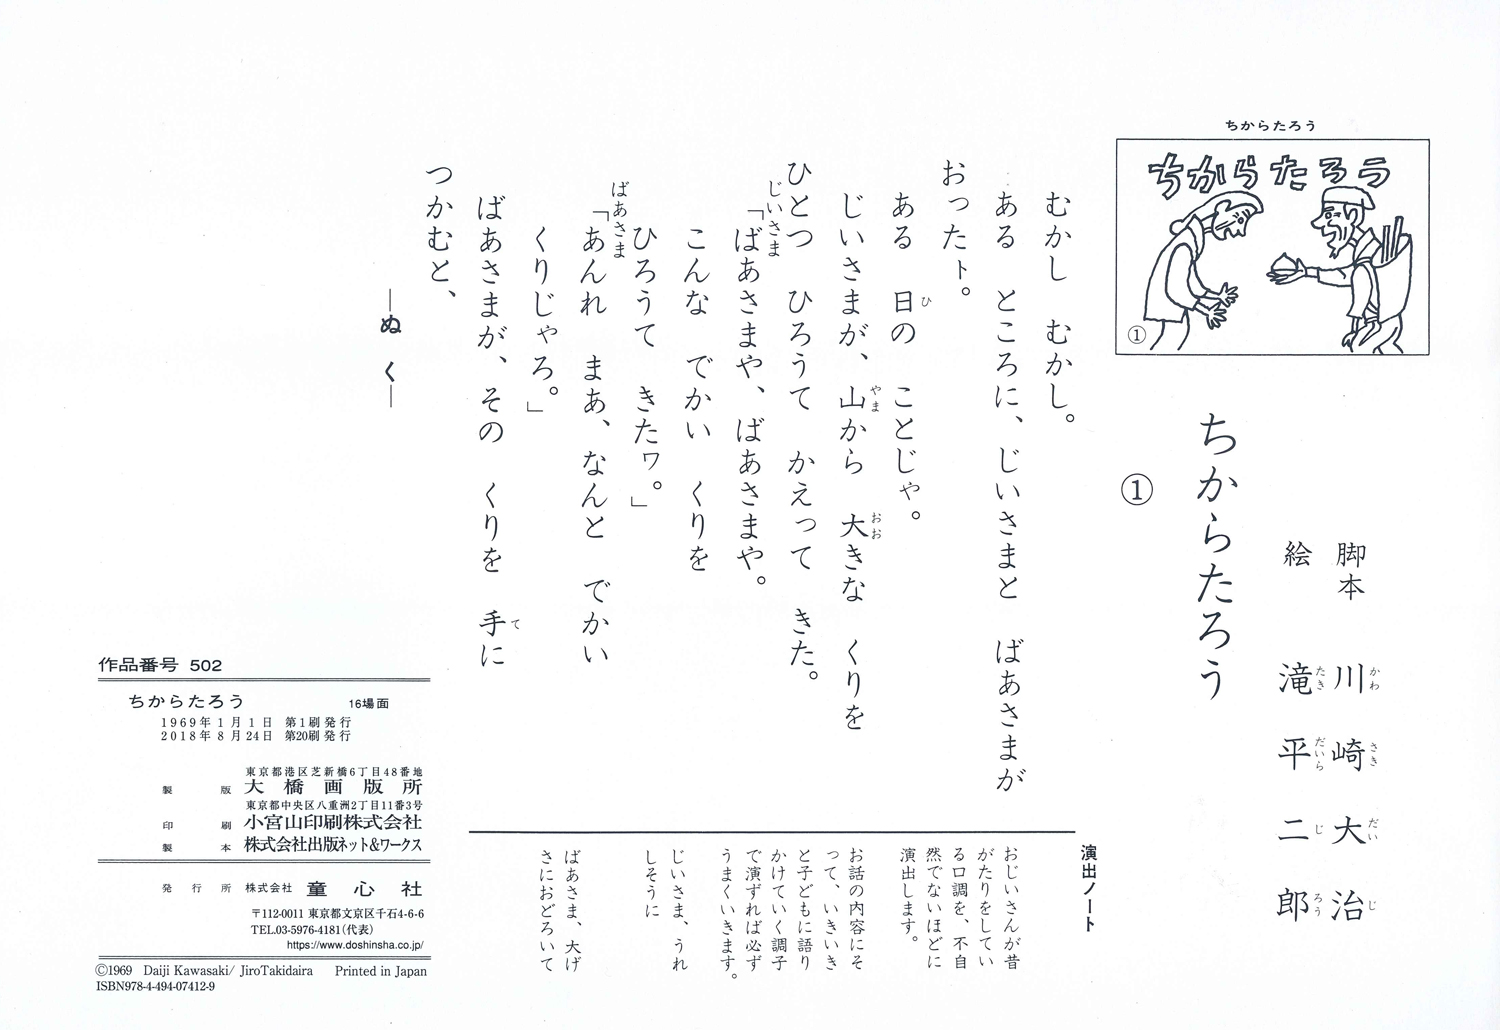 ちからたろう
ちからたろう
①
脚本　川崎大治
かわ さき だい じ
絵　滝平二郎
たき だいら じ ろう
ちからたろう
①
むかし　むかし。
ある　ところに、じいさまと　ばあさまが
おったト。
ある　日の　ことじゃ。
ひ
じいさまが、山から　大きな　くりを
やま おお
ひとつ　ひろうて　かえって　きた。
じいさま
「ばあさまや、ばあさまや。
こんな　でかい　くりを
ひろうて　きたヮ。」
ばあさま
「あんれ　まあ、なんと　でかい
くりじゃろ。」
ばあさまが、その　くりを　手に
て
つかむと、
―ぬ　く―
演出ノート
おじいさんが昔
がたりをしてい
る口調を、不自
然でないほどに
演出します。
お話の内容にそ
って、いきいき
と子どもに語り
かけていく調子
で演ずれば必ず
うまくいきます。
じいさま、うれ
しそうに
ばあさま、大げ
さにおどろいて
作品番号 502
ちからたろう　16場面
1969年1月1日　第1刷発行
2018年8月24日　第20刷発行
東京都港区芝新橋6丁目48番地
製版　大橋画版所
東京都中央区八重洲2丁目11番3号
印刷　小宮山印刷株式会社
製本　株式会社出版ネット&ワークス
発行所　株式会社　童心社
〒112-0011 東京都文京区千石4-6-6
TEL.03-5976-4181(代表)
https://www.doshinsha.co.jp/
©1969　Daiji Kawasaki/ JiroTakidaira　Printed in Japan
ISBN978-4-494-07412-9